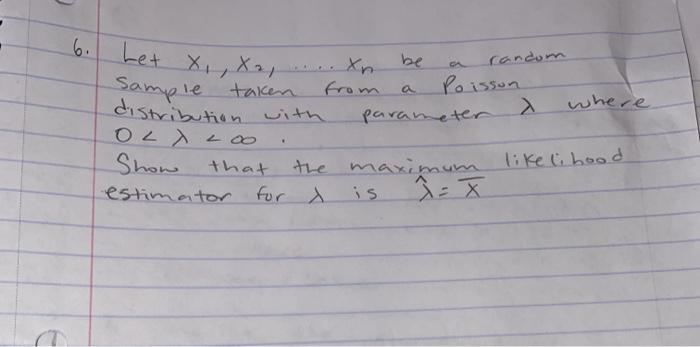 6. Let X₁, X₂, .... Xn be a random
sample taken from a Poisson
distribution with parameter λ where
0 < λ < ∞ .
Show that the maximum likelihood
estimator for λ is λ̂ = x̄